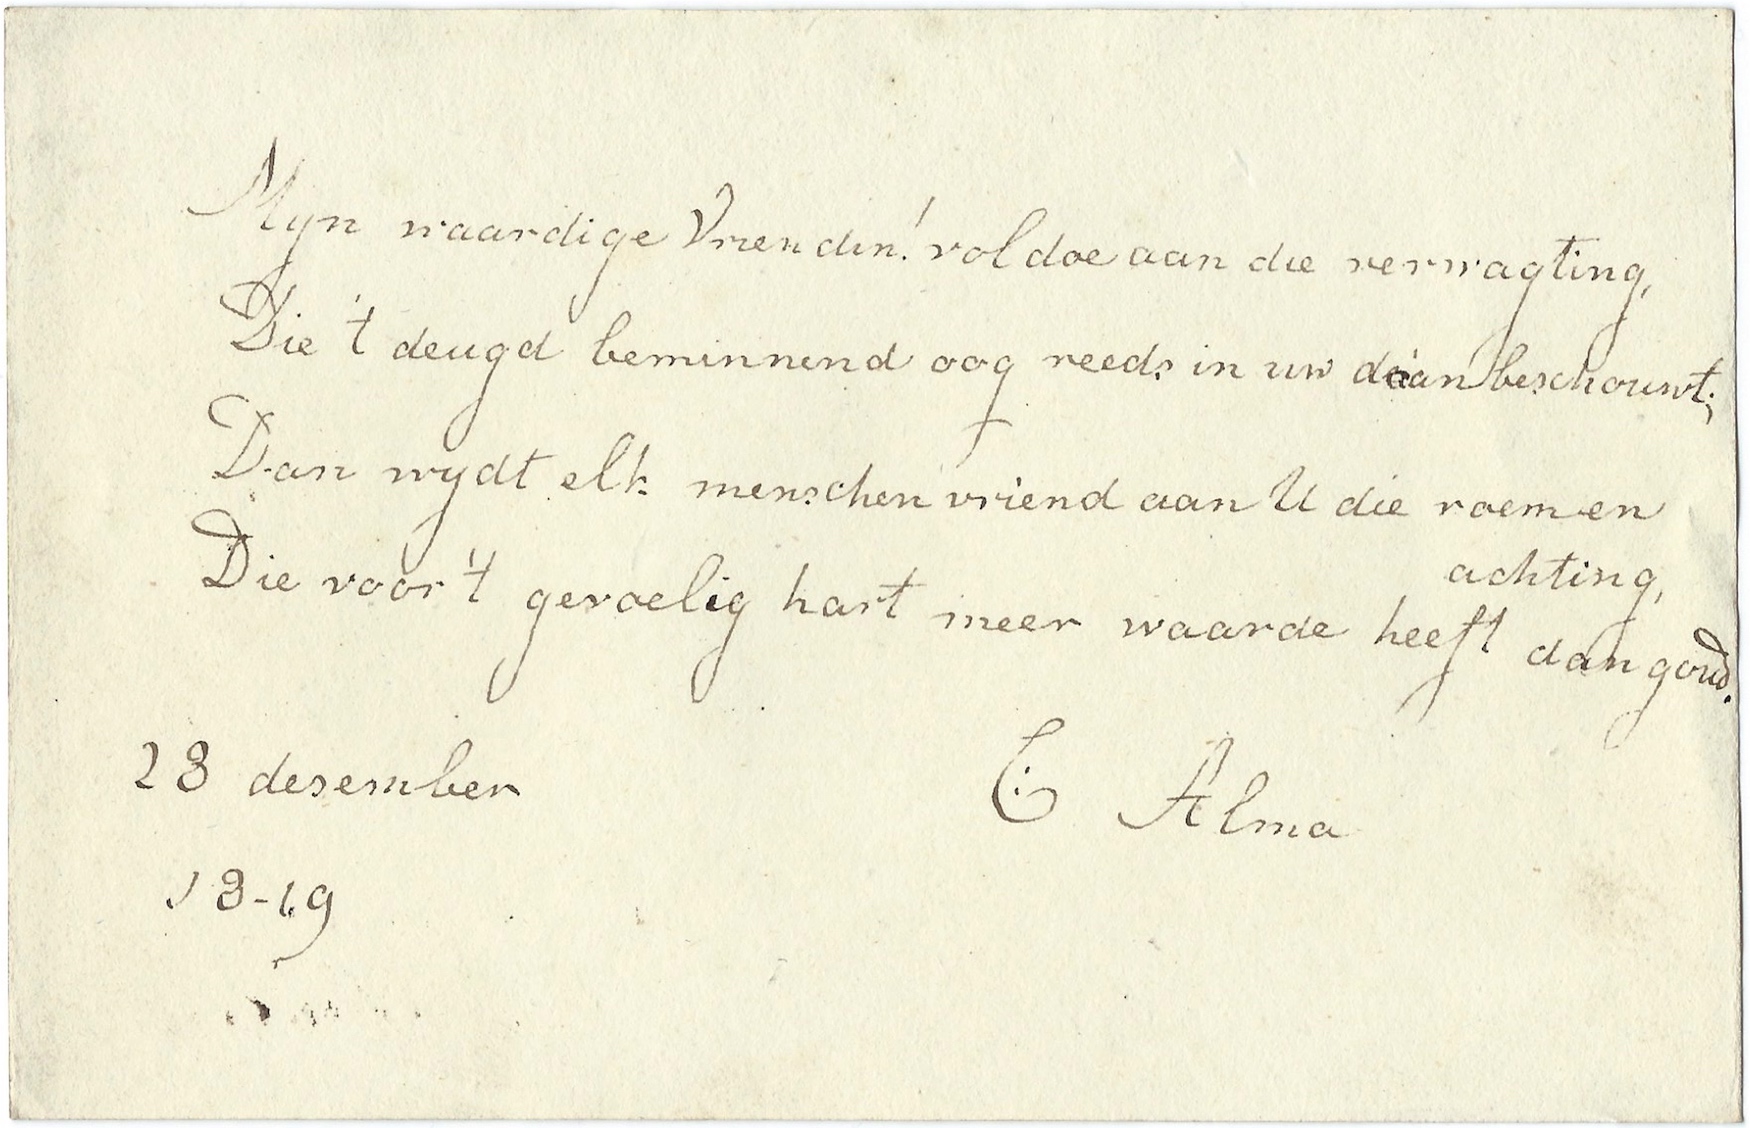 Myn waardige Vriendin! voldoe aan die verwagting,
Die 't deugd beminnend oog reeds in uw daan beschouwt;
Dan wydt elk menschen vriend aan U die roem en
achting,
Die voor 't gevoelig hart meer waarde heeft dan goud.
28 desember
18-19
C Alma